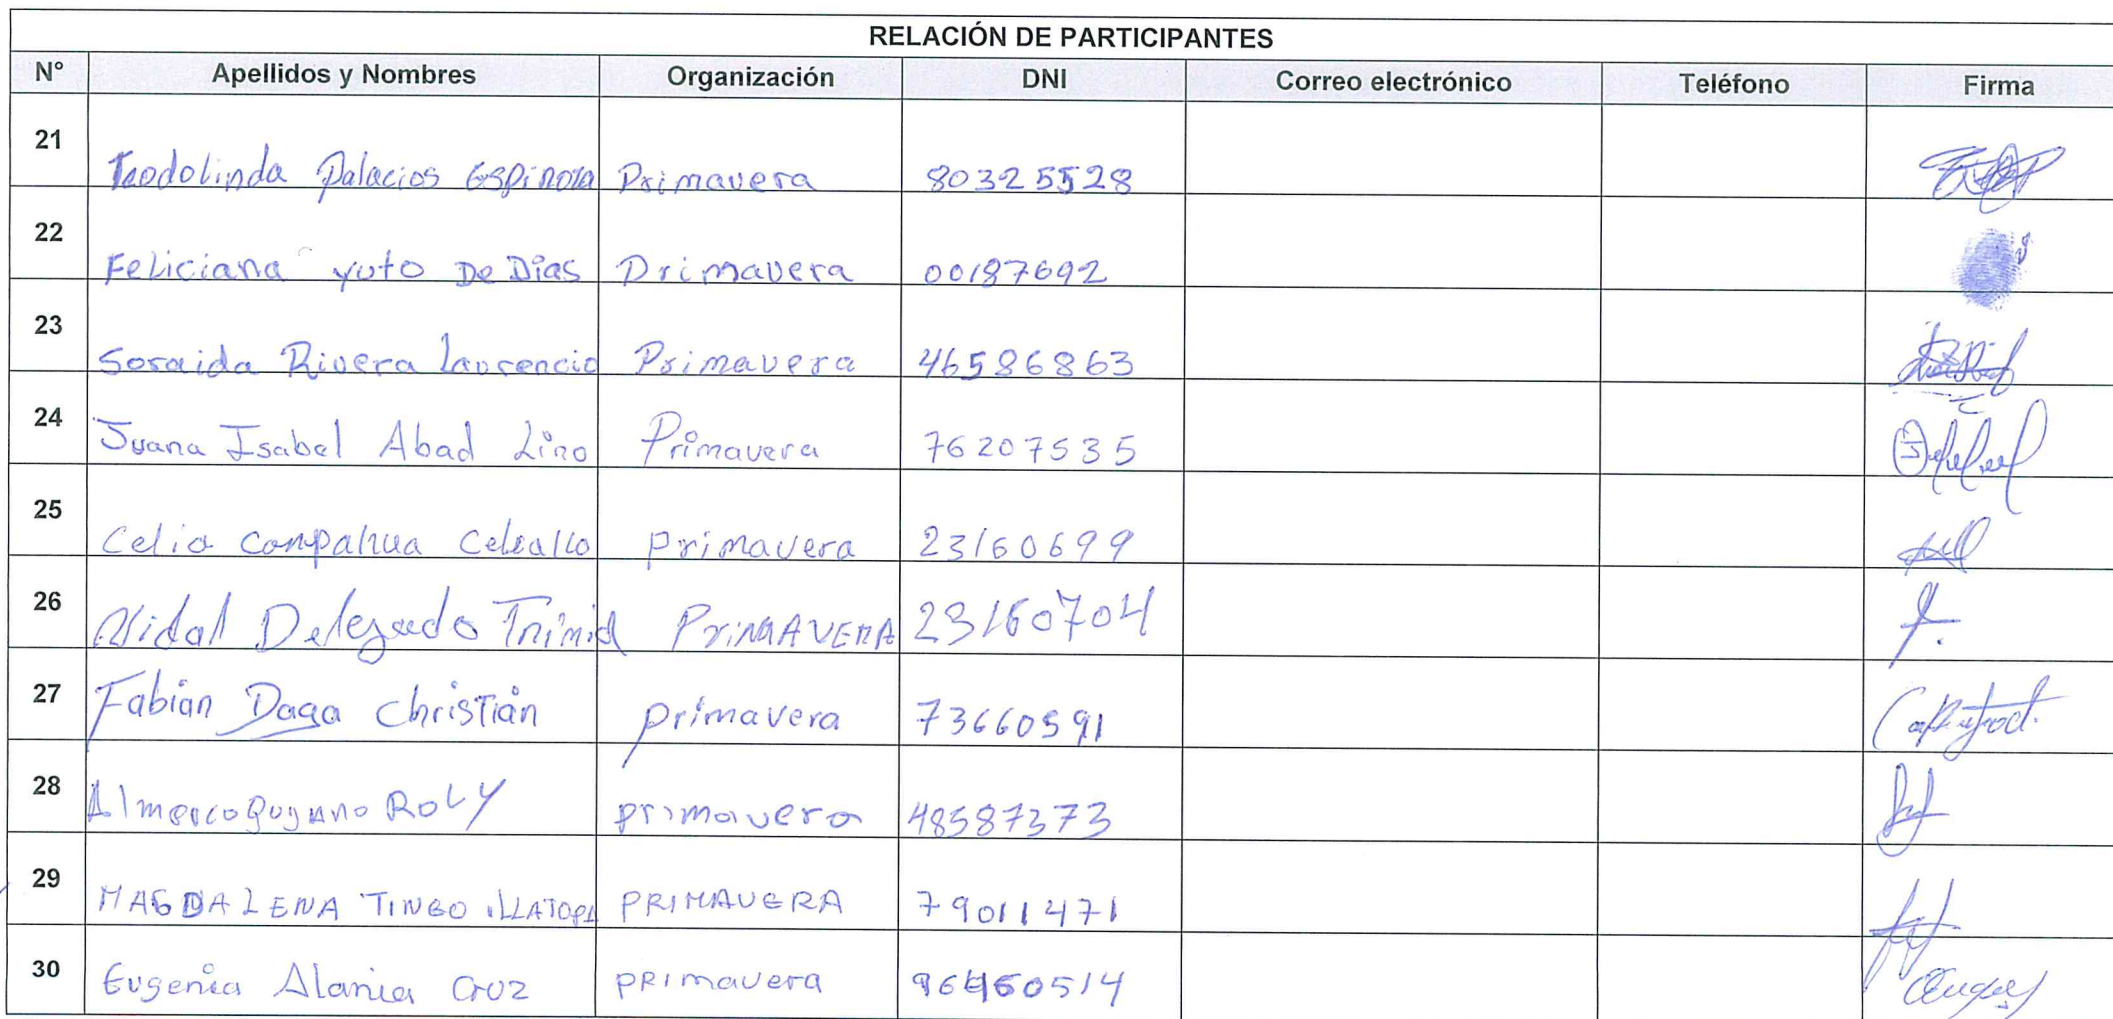 RELACIÓN DE PARTICIPANTES
N° Apellidos y Nombres Organización DNI Correo electrónico Teléfono Firma
21 Teodolinda Palacios Espinoza Primavera 80325528
22 Feliciana yuto De Dias Primavera 00187692
23 Soraida Rivera Laurencio Primavera 46586863
24 Juana Isabel Abad Lino Primavera 76207535
25 Celia Compahua primavera 23160699
26 Delegado PRIMAVERA 23160704
27 Fabian Daga Christian primavera 73660591
28 ROLY primavera 48587373
29 MAGDALENA TINGO ILLATOPA PRIMAVERA 79011471
30 Eugenia Alania Cruz PRimavera